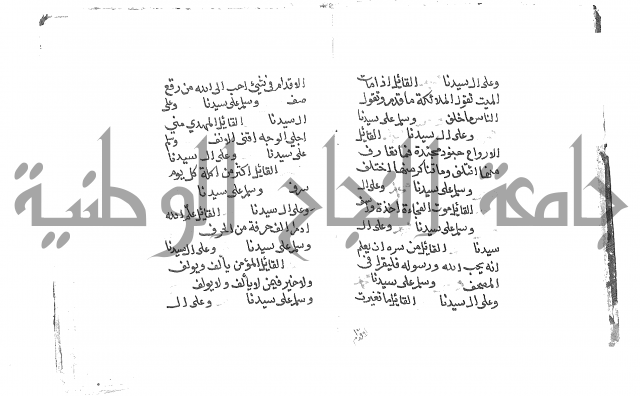 وعلى ال سيدنا القائل اذا مات
الميت تقول الملائكة ما قدم وتقول
الناس ما خلف وسلم على سيدنا
وعلى ال سيدنا القائل
الارواح جنود مجندة فما تعارف
منها ائتلف وما تناكر منها اختلف
وسلم على سيدنا وعلى ال
سيدنا القائل موت الفجاءة اخذة
وسلم على سيدنا وعلى ال
سيدنا القائل من سره ان يعلم
انه يحب الله ورسوله فليقرا في
المصحف وسلم على سيدنا
وعلى ال سيدنا القائل ما تغيرت
الاقدام
الاقدام في شيئ احب الى الله من رقع
صف وسلم على سيدنا وعلى
ال سيدنا القائل المهدي مني
اجلي الوجه اقنى الانف وسلم
على سيدنا وعلى ال سيدنا
القائل اكثر من اكلة كل يوم
سرف وسلم على سيدنا
وعلى ال سيدنا القائل
وسلم على سيدنا وعلى ال سيدنا
القائل المؤمن يألف ويولف
ولا خير فيمن لا يألف ولا يولف
وسلم على سيدنا وعلى ال
جامعة النجاح الوطنية